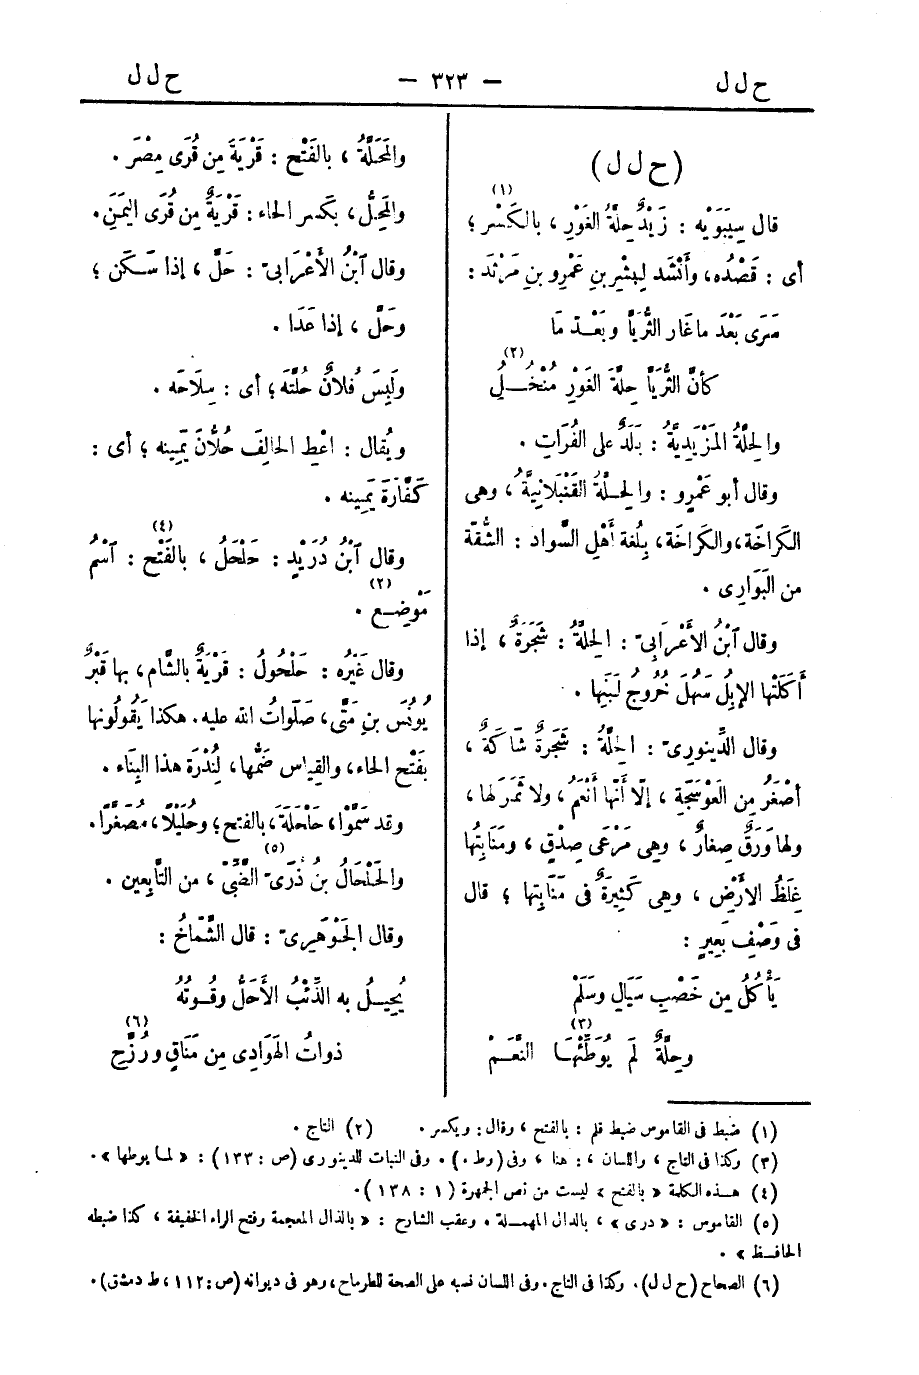 ح ل ل
— ٣٢٣ —
ح ل ل
(ح ل ل)
قال سِيبَوَيْه : زَيْدٌ حِلَّةُ الغَوْرِ ، بالكَسْرِ (١) ؛
أى : قَصْدُه ، وأَنْشَد لِبِشْرِ بنِ عَمْرِو بنِ مَرْثَد :
سَرَى بَعْدَ ما غار الثُّرَيَّا وبَعْدَ مَا
كأنَّ الثُّرَيَّا حِلَّةَ الغَوْرِ مُنْخُلُ (٢)
والحِلَّةُ المَزْيَدِيَّةُ : بَلَدٌ على الفُرَاتِ .
وقال أبو عَمْرٍو : والحِلَّةُ القَنْبَلانِيَّةُ ، وهى
الكَرَاخَة ، والكَرَاخَة ، بِلُغة أَهْلِ السَّواد : الشُّقّة
من البَوَارِى .
وقال ٱبْنُ الأَعْرَابىّ : الحِلَّةُ : شَجَرَةٌ ، إذا
أَكَلَتْها الإبِلُ سَهُلَ خُرُوجُ لَبَنِها .
وقال الدِّينورىّ : الحِلَّةُ : شَجَرَةٌ شَاكَةٌ ،
أصْغَرُ مِن العَوْسَجَةِ ، إلّا أنّها أَنْعَمُ ، ولا ثَمَرَ لها ،
ولها وَرَقٌ صِغارٌ ، وهى مَرْعَى صِدْقٍ ، ومَنَابِتُها
غِلَظُ الأَرْضِ ، وهِى كَثِيرَةٌ فى مَنَابِتِها ؛ قال
فى وَصْفِ بَعِيرٍ :
يَأْكُلُ مِن خَصْبٍ سَيَالٍ وسَلَمْ
وحِلَّةٌ لَمَ يُوَطِّئْهَا النَّعَمْ (٣)
والمَحَلَّةُ ، بالفَتْح : قَرْيَةَ مِن قُرَى مِصْرَ .
والمَحِلُّ ، بكَسر الحاء : قَرْيَةٌ مِن قُرَى اليَمَنِ .
وقال ٱبْنُ الأَعْرَابىّ : حَلَّ ، إذا سَكَن ؛
وحَلَّ ، إذا عَدَا .
ولَيسَ فُلانٌ حُلَّتَه ؛ أى : سِلَاحَه .
ويُقال : اعْطِ الحالِفَ حُلَّانَ يَمِينه ؛ أى :
كَفَّارَةَ يَمِينه .
وقال ٱبْنُ دُرَيْدٍ : حَلْحَلُ (٤) ، بالفَتْح : ٱسْمُ
مَوْضِع (٢) .
وقال غَيْرُه : حَلْحُولُ : قَرْيَةٌ بالشَّام ، بها قَبْرُ
يُونُسَ بنِ مَتَّى ، صَلَواتُ الله عليه . هكذا يَقُولُونها
بفَتْح الحاء ، والقِياس ضَمُّها ، لِنُدْرَة هذا البِنَاء .
وقد سَمَّوْا ، حَلْحَلَةَ ، بالفتح ؛ وحُلَيْلًا ، مُصَغَّرا .
والحَلْحَالُ بنُ ذُرَىّ (٥) الضَّبِّىّ ، من التَّابِعين .
وقال الجَوْهَرِىّ : قال الشَّمَّاخُ :
يُحِيلُ به الذِّئْبُ الأَحَلُّ وقُوتُهُ
ذواتُ الهَوَادِى مِن مَنَاقٍ ورُزَّحِ (٦)
(١) ضبط فى القاموس ضبط قلم : بالفتح ، وقال : ويكسر .
(٢) التاج .
(٣) وكذا فى التاج ، واللسان ، : هنا ، وفى (وط ٠) . وفى النبات للدينورى (ص : ١٣٣) : « لما يوطها » .
(٤) هذه الكلمة « بالفتح » ليست من نص الجمهرة (١ : ١٣٨) .
(٥) القاموس : « درى » ، بالدال المهملة . وعقب الشارح : « بالذال المعجمة وفتح الراء الخفيفة ، كذا ضبطه
الحافظ » .
(٦) الصحاح (ح ل ل) . وكذا فى التاج . وفى اللسان نسبه على الصحة للطرماح ، وهو فى ديوانه (ص : ١١٢ ، ط دمشق) .